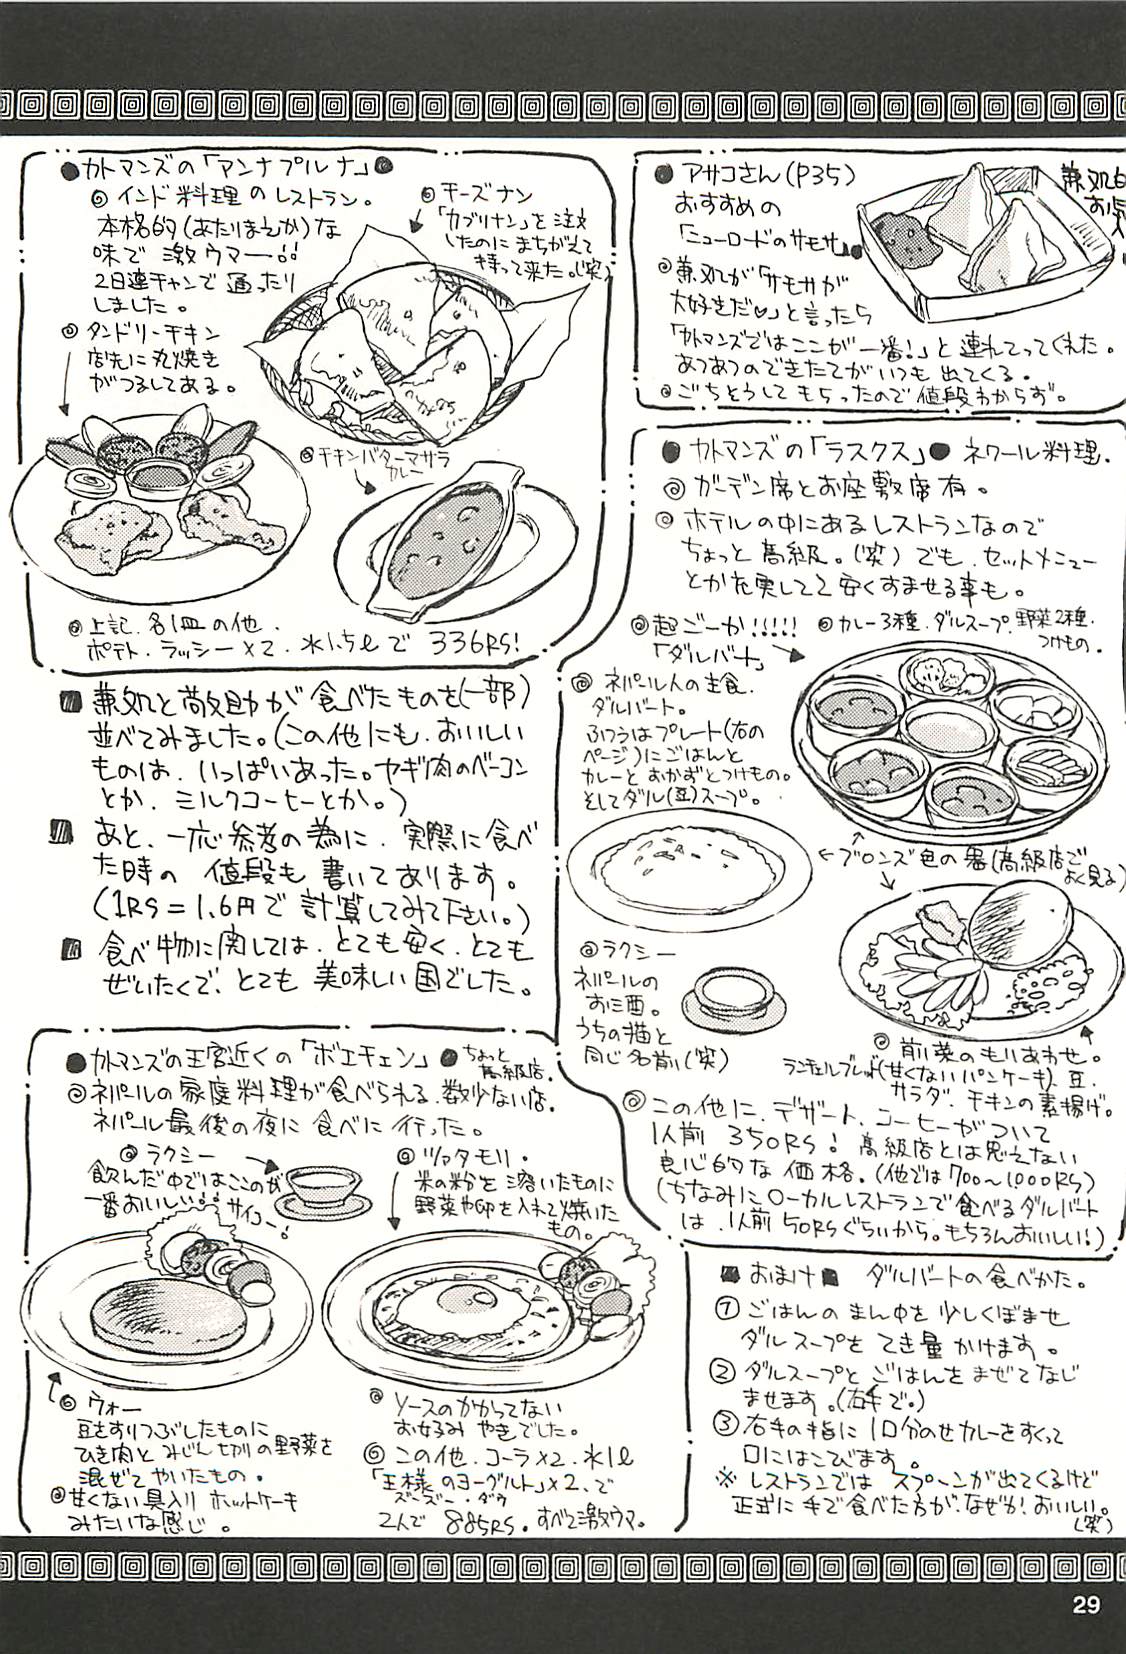 ●カトマンズの「アンナプルナ」●
◎インド料理のレストラン。
本格的(あたりまえか)な
味で激ウマー!!
2日連チャンで通ったり
しました。
◎タンドリーチキン
店先に丸焼き
がつるしてある。
◎チーズナン
「カブリナン」を注文
したのにまちがえて
持って来た。(笑)
◎チキンバターマサラ
カレー
◎上記.各1皿の他.
ポテト.ラッシー×2.水1.5ℓで 336RS!
●アサコさん(P35)
おすすめの
「ニューロードのサモサ」●
◎兼処が「サモサが
大好きだ♡」と言ったら
「カトマンズではここが一番!」と連れてってくれた。
あつあつのできたてがいつも出てくる。
◎ごちそうしてもらったので値段わからず。
■兼処と尚助が食べたものを(一部)
並べてみました。(この他にも.おいしい
ものは.いっぱいあった。ヤギ肉のベーコン
とか.ミルクコーヒーとか。)
■あと、一応参考の為に.実際に食べ
た時の値段も書いてあります。
(1RS=1.6円で計算してみて下さい。)
■食べ物に関しては.とても安く.とても
ぜいたくで、とても美味しい国でした。
●カトマンズの「ラスクス」●ネワール料理.
◎ガーデン席とお座敷席有。
◎ホテルの中にあるレストランなので
ちょっと高級。(笑)でも、セットメニュー
とか充実してて安くすませる事も。
◎超ごーか!!!!!
「ダルバート」
◎カレー3種.ダルスープ.野菜2種.
つけもの。
◎ネパール人の主食.
ダルバート。
ふつうはプレート(右の
ページ)にごはんと
カレーとおかずとつけもの。
そしてダル(豆)スープ。
←ブロンズ色の器(高級店で
よく見る)
◎ラクシー
ネパールの
お酒。
うちの猫と
同じ名前(笑)
◎前菜のもりあわせ。
(甘くないパンケーキ).豆.
サラダ.チキンの素揚げ。
◎この他に.デザート.コーヒーがついて
1人前 350RS!高級店とは思えない
良心的な価格。(他では700〜1000RS)
(ちなみにローカルレストランで食べるダルバート
は.1人前50RSぐらいから。もちろんおいしい!)
●カトマンズの王宮近くの「ボエチェン」●ちょっと
高級店.
◎ネパールの家庭料理が食べられる.数少ない店.
ネパール最後の夜に食べに行った。
◎ラクシー
飲んだ中ではここのが
一番おいしい!!サイコー!
◎ツァタモリ.
米の粉を溶いたものに
野菜や卵を入れて焼いた
もの。
◎ウォー
豆をすりつぶしたものに
ひき肉とみじん切りの野菜を
混ぜてやいたもの.
◎甘くない具入りホットケーキ
みたいな感じ。
◎ソースのかかってない
お好みやきでした。
◎この他.コーラ×2.水1ℓ
「王様のヨーグルト」×2.で
ズーズー・ダウ
2人で 885RS.すべて激ウマ。
■おまけ■ ダルバートの食べかた。
①ごはんのまん中を少しくぼませ
ダルスープをてき量かけます。
②ダルスープとごはんをまぜてなじ
ませます。(右手で。)
③右手の指に1口分のせカレーをすくって
口にはこびます。
※レストランではスプーンが出てくるけど
正式に手で食べた方が、なぜか!おいしい。
(笑)
29